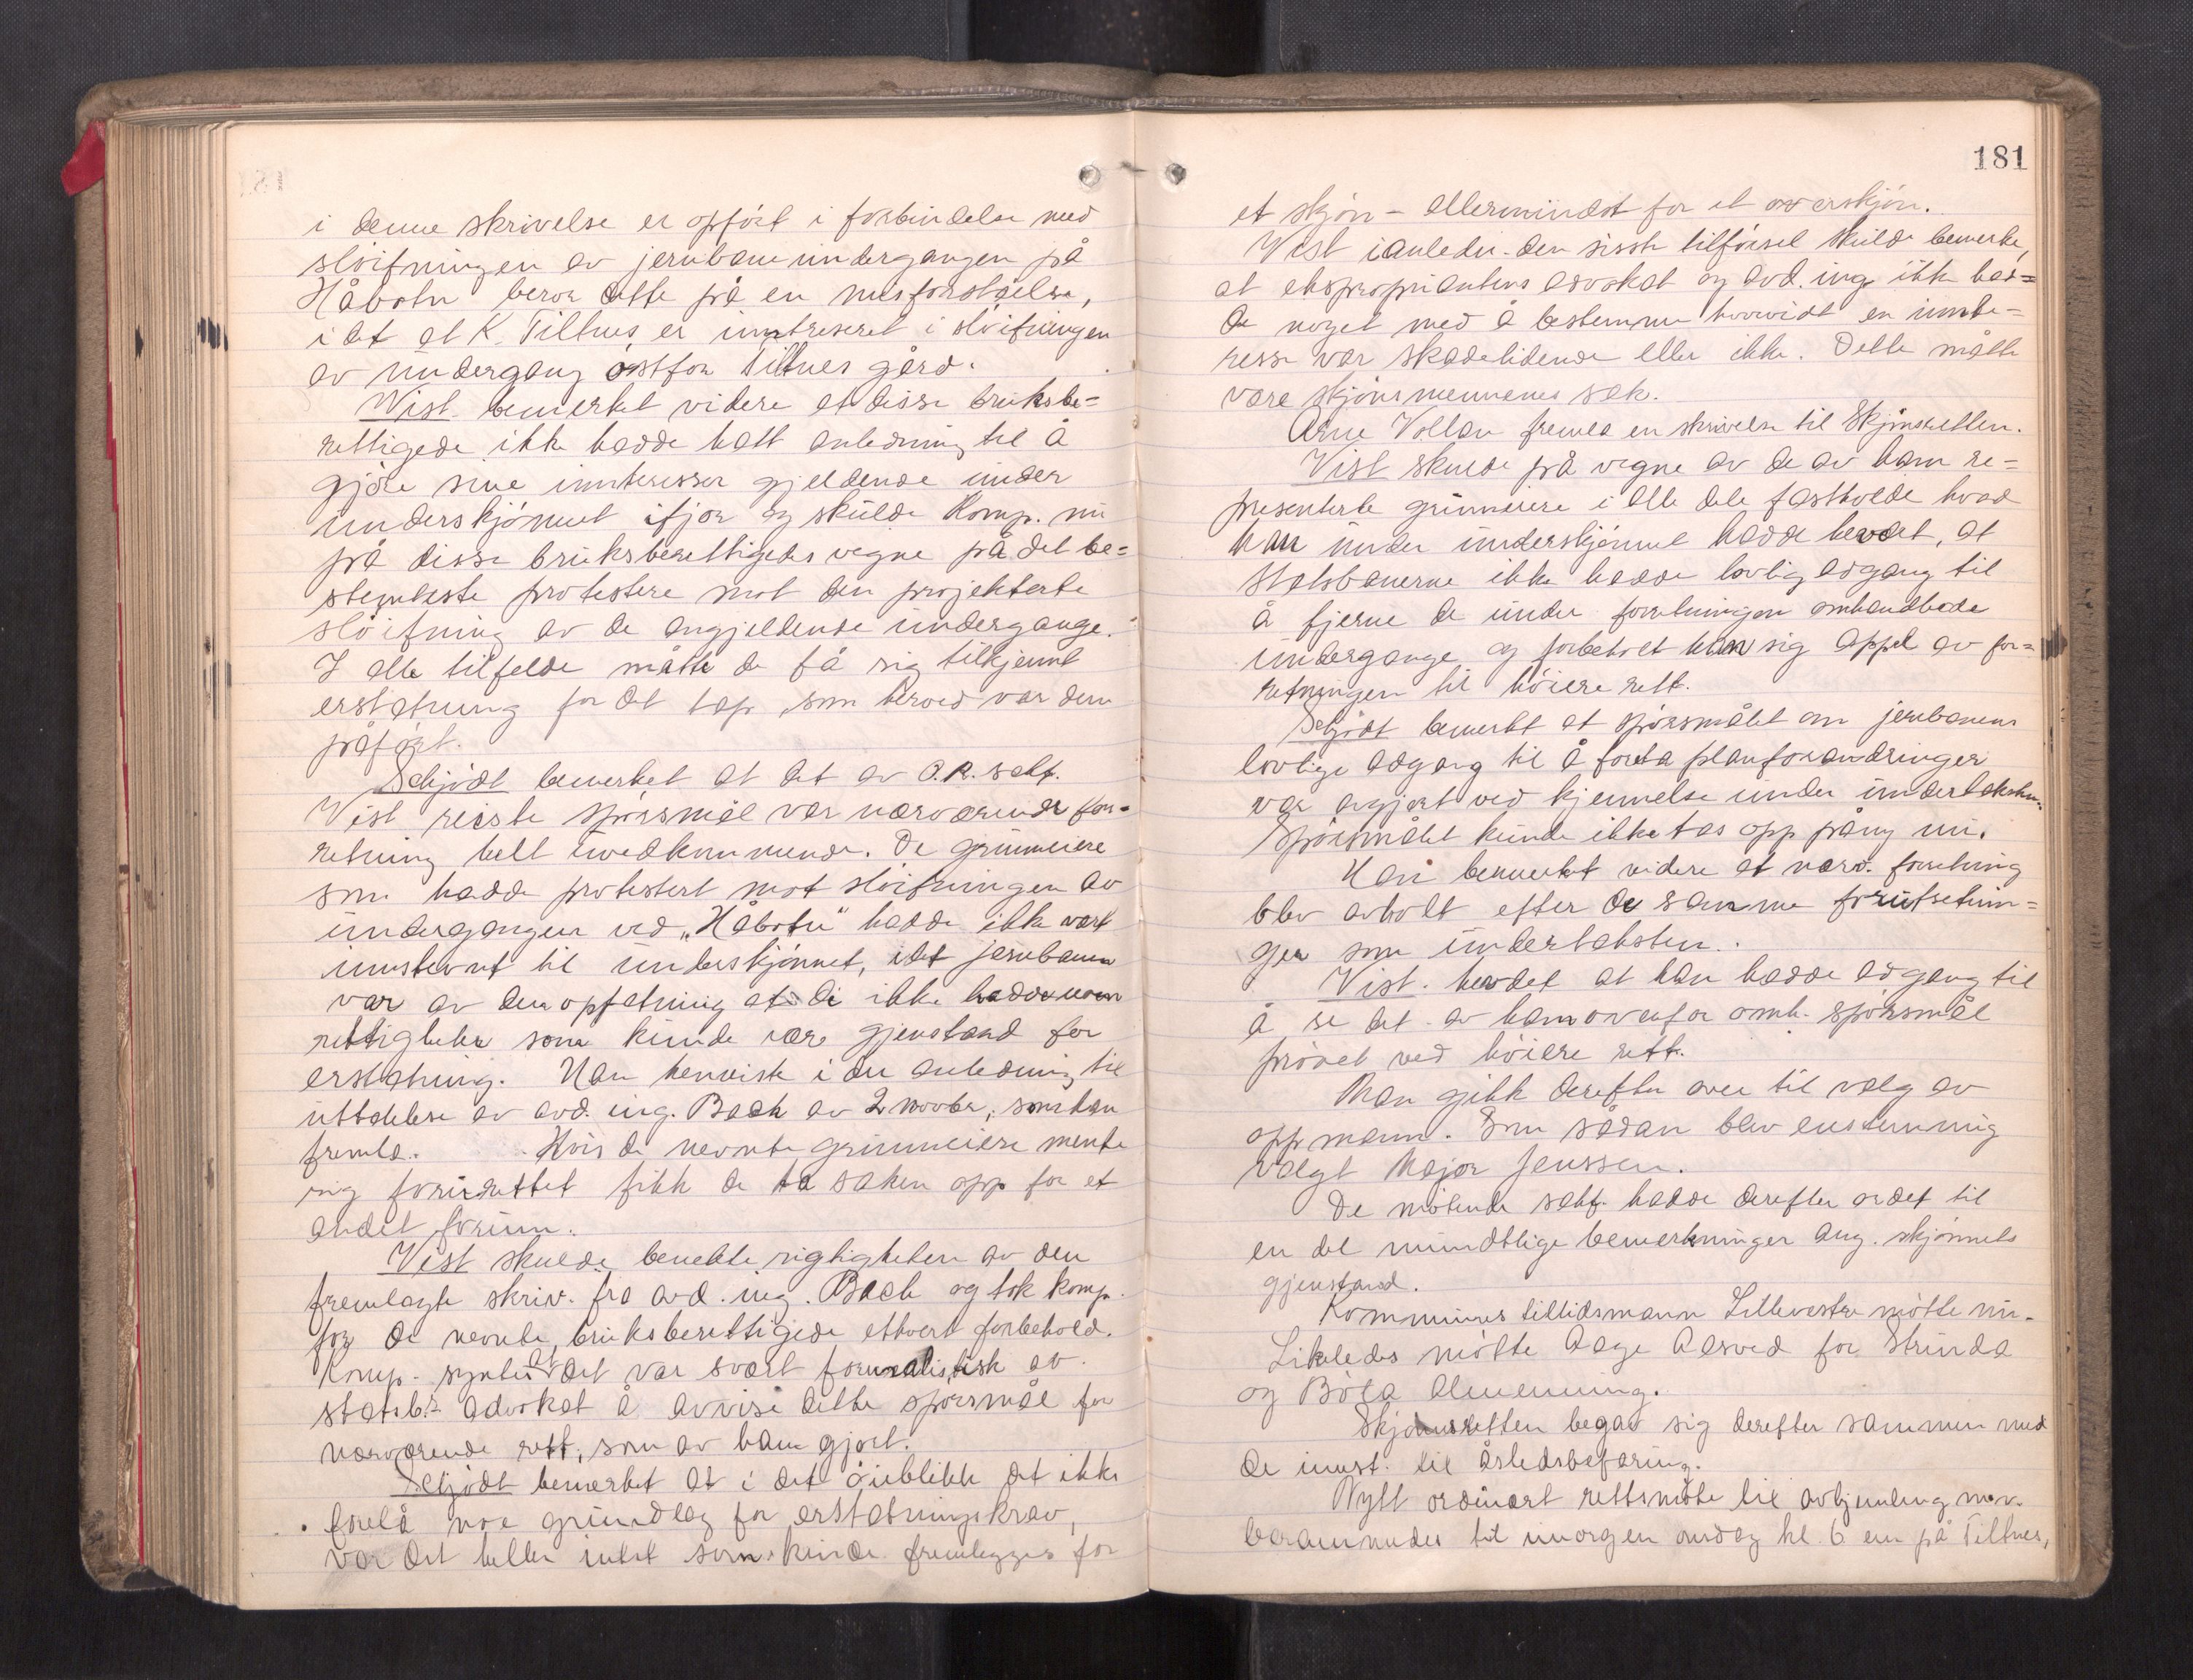 i denne skrivelse er opført i forbindelse med
sløifningen av jernbaneundergangen på
Håbotn beror dette på en misforståelse,
idet at K. Tiltnes er inntreseret i sløifningen
av undergang østfor Tiltnes gård.
Vist. bemerket videre at disse bruksbe=
rettigede ikke hadde hatt anledning til å
gjøre sine innteresser gjeldende under
underskjønnet ifjor og skulde Komp. nu
på disse bruksberettigedes vegne på det be=
stemteste protestere mot den projekterte
sløifning av de angjeldende undergange.
I alle tilfelde måtte de få sig tilkjennt
erstatning for det tap, som herved var dem
påført.
Schjødt bemerket at det av O.R. sakf.
Vist reiste spørsmål var nærværende for-
retning helt uvedkommende. De grunneiere
som hadde protestert mot sløifningen av
undergangen ved „Håbotn“ hadde ikke vært
innstevnt til underskjønnet, idet jernbanen
var av den opfatning at de ikke hadde noen
rettigheter som kunde være gjenstand for
erstatning. Han henviste i den anledning til
uttalelse av avd. ing. Bach av 2 novbr., som han
fremla. Hvis de nevnte grunneiere mente
sig forurettet fikk de ta saken opp for et
andet forum.
Vist skulde benekte rigtigheten av den
fremlagte skriv. fra avd. ing. Bach og tok komp.
for de nevnte bruksberettigede ethvert forbehold.
Komp. syntes at det var svært formalistisk av
statsb.s advokat å avvise dette spørsmål for
nærværende rett, som av ham gjort.
Schjødt bemerket at i det øieblikk det ikke
forelå noe grundlag for erstatningskrav,
var det heller intet som kunde fremlegges for
181
et skjøn - allermindst for et overskjøn.
Vist i anledn. den siste tilførsel skulde bemerke,
at ekspropriantens advokat og avd. ing. ikke had=
de noget med å bestemme hvorvidt en innte=
resse var skadelidende eller ikke. Dette måtte
være skjønsmennenes sak.
Arne Vollan fremla en skrivelse til Skjønsretten.
Vist skulde på vegne av de av ham re=
presenterte grunneiere i alle dele fastholde hvad
han under underskjønnet hadde hevdet, at
Statsbanerne ikke hadde lovlig adgang til
å fjerne de under forretningen omhandlede
undergange og forbeholt han sig appel av for=
retningen til høiere rett.
Schjødt bemerket at spørsmålet om jernbanens
lovlige adgang til å foreta planforandringer
var avgjort ved kjennelse under undertaksten.
Spørsmålet kunde ikke tas opp påny nu.
Han bemerket videre at nærv. forretning
blev avholt efter de samme forutsetnin=
ger som undertaksten.
Vist. hevdet at han hadde adgang til
å se det av ham ovenfor omh. spørsmål
prøvet ved høiere rett.
Man gikk derefter over til valg av
oppmann. Som sådan blev enstemmig
valgt Major Jenssen.
De møtende sakf. hadde derefter ordet til
en del mundtlige bemerkninger ang. skjønnets
gjenstand.
Kommunes tillidsmann Lillevestre møtte nu.
Likeledes møtte Aage Aasved for Strinda
og Bøla Almenning.
Skjønsretten begav sig derefter sammen med
de innst. til åstedsbefaring.
Nytt ordinært rettsmøte til avhjemling m.v.
berammedes til imorgen onsdag kl. 6 em på Tiltnes,